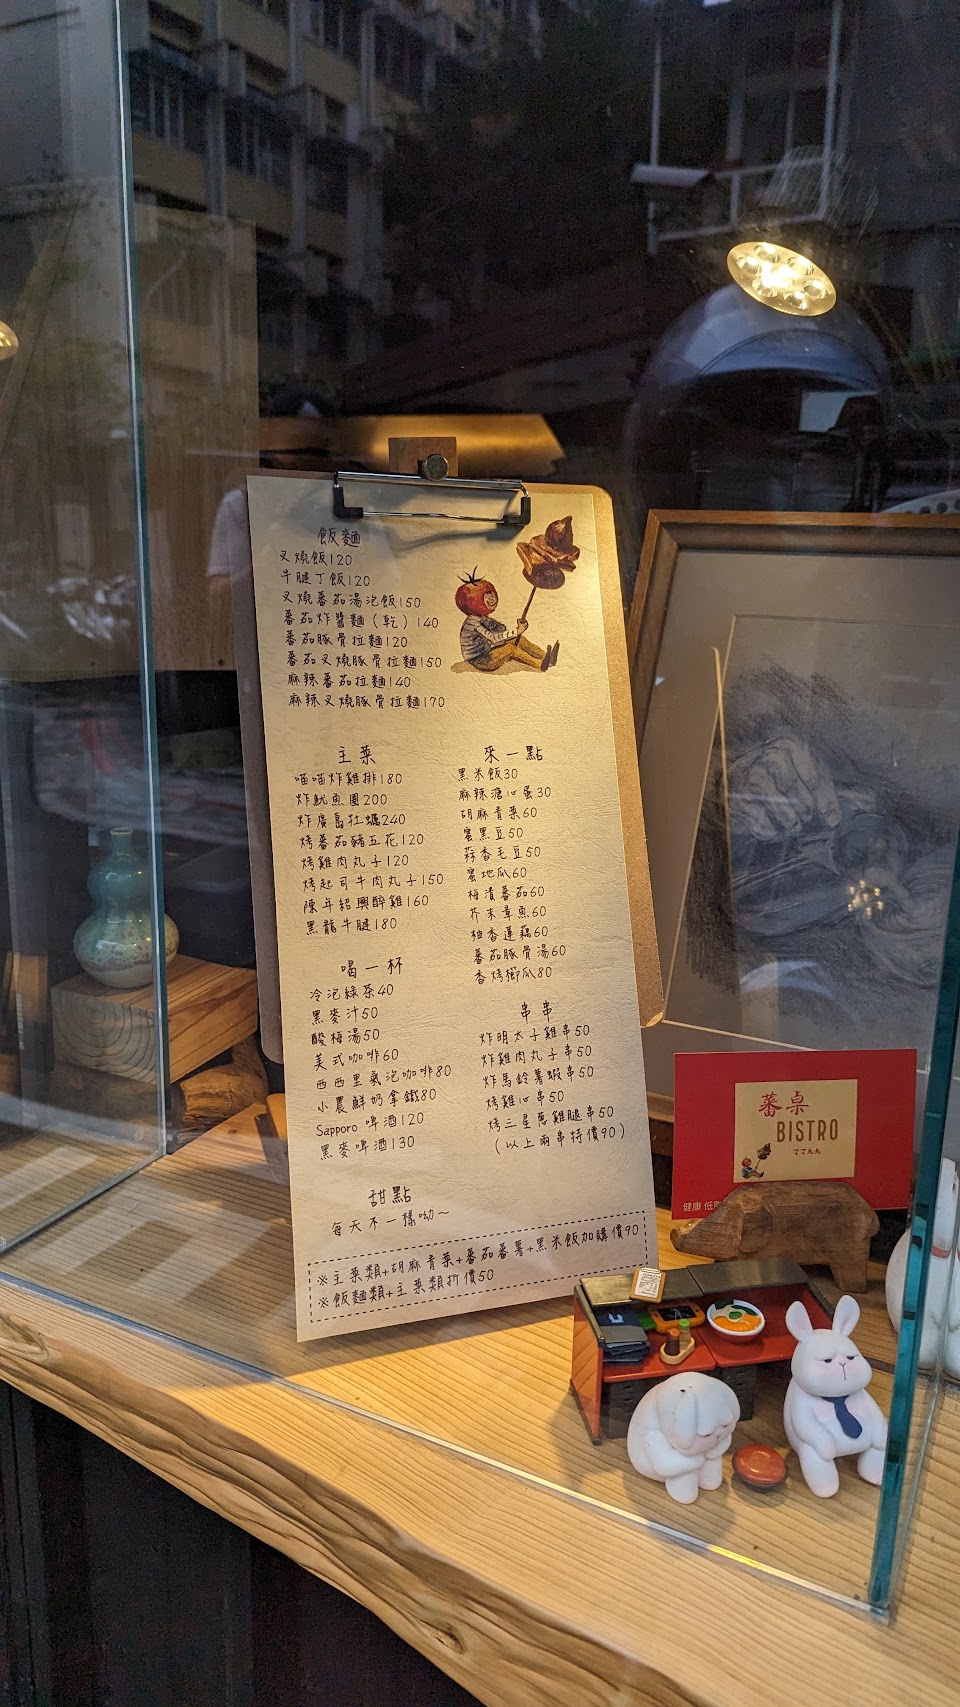 飯麵
叉燒飯120
牛腱丁飯120
叉燒蕃茄湯泡飯150
蕃茄炸醬麵(乾)140
蕃茄豚骨拉麵120
蕃茄叉燒豚骨拉麵150
麻辣蕃茄拉麵140
麻辣叉燒豚骨拉麵170
主菜
喵喵炸雞排180
炸魷魚圈200
炸廣島牡蠣240
烤蕃茄豬五花120
烤雞肉丸子120
烤起司牛肉丸子150
陳年紹興醉雞160
黑龍牛腱180
喝一杯
冷泡綠茶40
黑麥汁50
酸梅湯50
美式咖啡60
西西里氣泡咖啡80
小農鮮奶拿鐵80
Sapporo 啤酒120
黑麥啤酒130
甜點
每天不一樣呦~
來一點
黑米飯30
麻辣溏心蛋30
胡麻青菜60
蜜黑豆50
蒜香毛豆50
蜜地瓜60
梅漬蕃茄60
芥末章魚60
柚香蓮藕60
蕃茄豚骨湯60
香烤櫛瓜80
串串
炸明太子雞串50
炸雞肉丸子串50
炸馬鈴薯蝦串50
烤雞心串50
烤三星蔥雞腿串50
(以上兩串特價90)
※主菜類+胡麻青菜+蕃茄蕃薯+黑米飯加購價90
※飯麵類+主菜類折價50
蕃桌
BISTRO
丁丁丸丸
健康 低脂